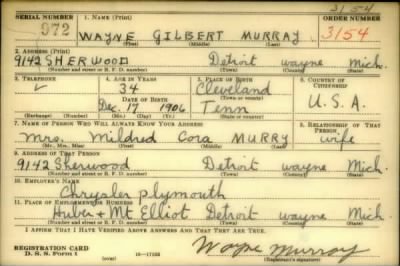 3154
SERIAL NUMBER 1. NAME (Print) ORDER NUMBER
972 WAYNE GILBERT MURRAY 3154
(First) (Middle) (Last)
2. ADDRESS (Print)
9142 SHERWOOD Detroit wayne Mich.
(Number and street or R. F. D. number) (Town) (County) (State)
3. TELEPHONE 4. AGE IN YEARS 5. PLACE OF BIRTH 6. COUNTRY OF CITIZENSHIP
34 Cleveland
DATE OF BIRTH (Town or county)
Dec. 17 1906 Tenn U.S.A.
(Mo.) (Day) (Yr.) (State or country)
7. NAME OF PERSON WHO WILL ALWAYS KNOW YOUR ADDRESS 8. RELATIONSHIP OF THAT PERSON
Mrs. Mildred Cora MURRY wife
(Mr., Mrs., Miss) (First) (Middle) (Last)
9. ADDRESS OF THAT PERSON
9142 Sherwood Detroit wayne Mich.
(Number and street or R. F. D. number) (Town) (County) (State)
10. EMPLOYER'S NAME
Chrysler plymouth
11. PLACE OF EMPLOYMENT OR BUSINESS
Huber + Mt Elliot Detroit wayne Mich.
(Number and street or R. F. D. number) (Town) (County) (State)
I AFFIRM THAT I HAVE VERIFIED ABOVE ANSWERS AND THAT THEY ARE TRUE.
REGISTRATION CARD
D. S. S. Form 1 (over) Wayne Murray
(Registrant's signature)